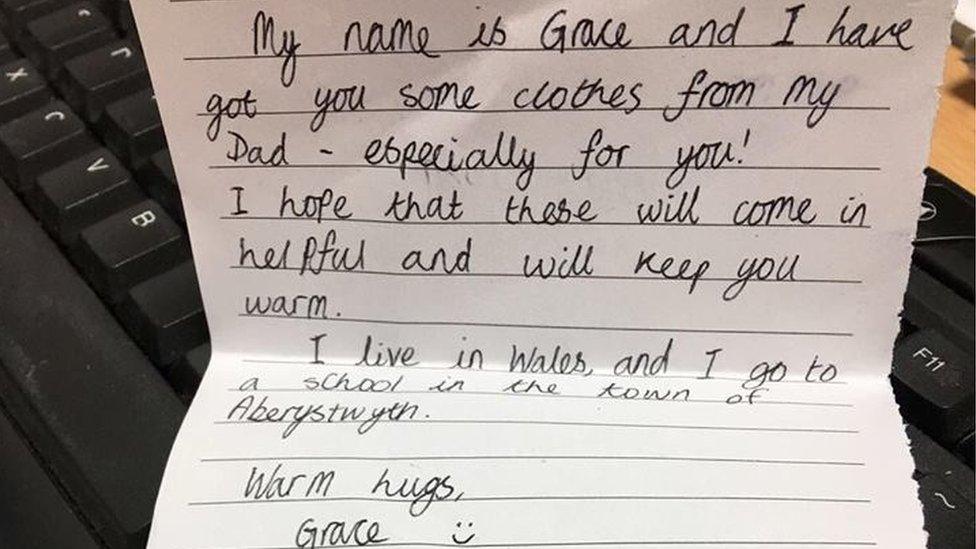 My name is Grace and I have
got you some clothes from my
Dad - especially for you!
I hope that these will come in
helpful and will keep you
warm.
I live in Wales, and I go to
a school in the town of
Aberystwyth.
Warm hugs,
Grace :)
X
C
V
B
F11